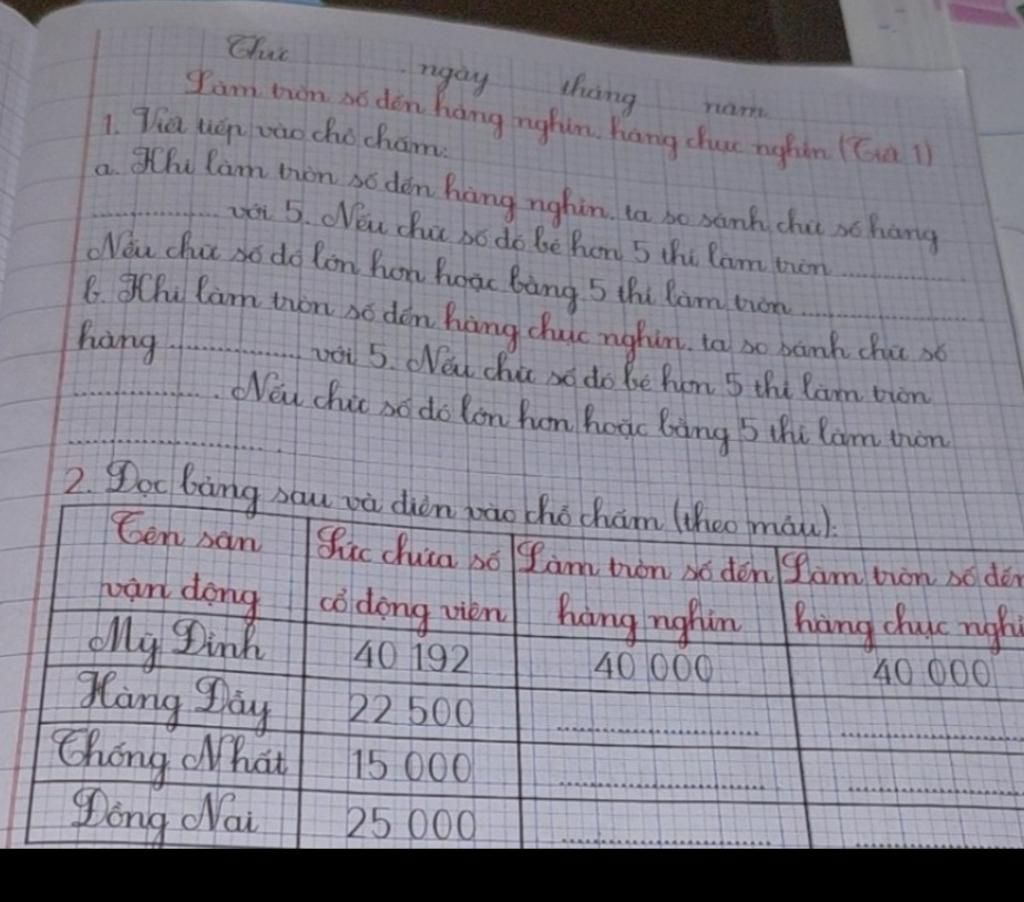 Thứ ngày tháng năm
Làm tròn số đến hàng nghìn, hàng chục nghìn (Tiết 1)
1. Viết tiếp vào chỗ chấm:
a. Khi làm tròn số đến hàng nghìn, ta so sánh chữ số hàng
................ với 5. Nếu chữ số đó bé hơn 5 thì làm tròn ................
Nếu chữ số đó lớn hơn hoặc bằng 5 thì làm tròn ................
b. Khi làm tròn số đến hàng chục nghìn, ta so sánh chữ số
hàng ................ với 5. Nếu chữ số đó bé hơn 5 thì làm tròn
................. Nếu chữ số đó lớn hơn hoặc bằng 5 thì làm tròn
............................
2. Đọc bảng sau và điền vào chỗ chấm (theo mẫu):
Tên sân vận động | Sức chứa số cổ động viên | Làm tròn số đến hàng nghìn | Làm tròn số đến hàng chục nghì
Mỹ Đình | 40 192 | 40 000 | 40 000
Hàng Đẫy | 22 500 | ................ | ................
Thống Nhất | 15 000 | ................ | ................
Đồng Nai | 25 000 | ................ | ................